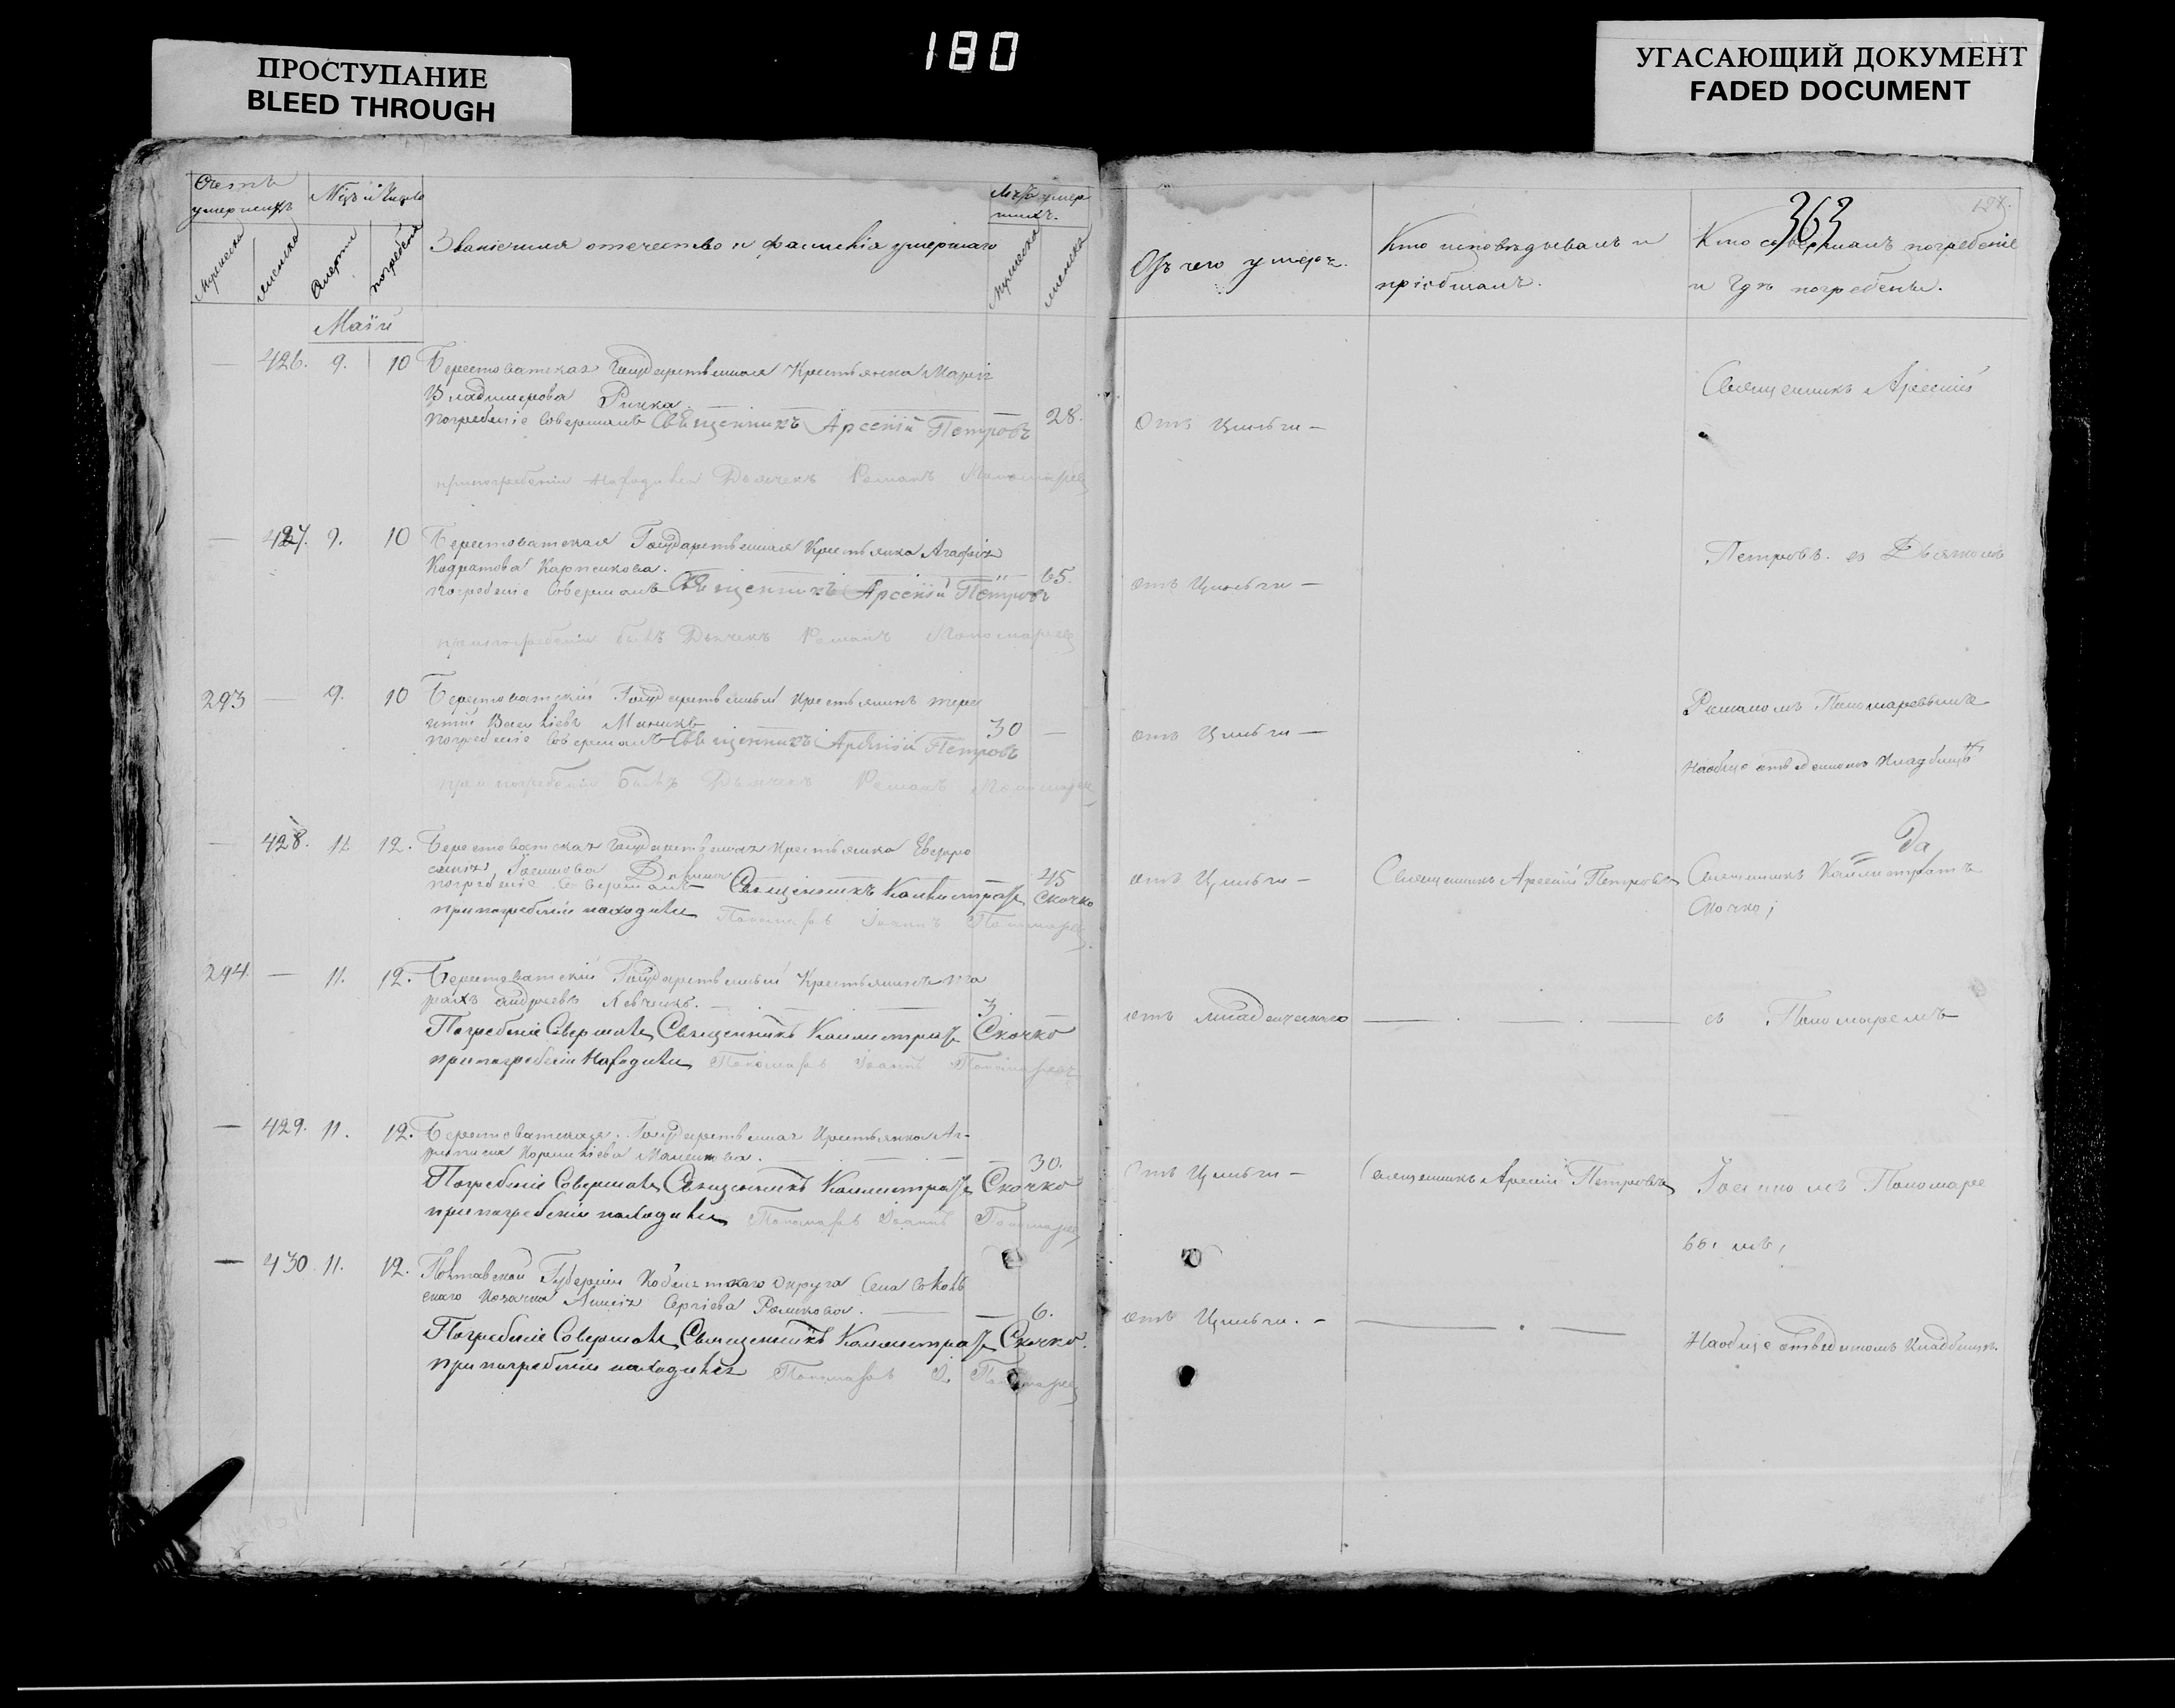 180
ПРОСТУПАНИЕ
BLEED THROUGH
УГАСАЮЩИЙ ДОКУМЕНТ
FADED DOCUMENT
Счетъ умершихъ
Мужеска
женска
Мѣсъ и Число
Смерти
погребенія
Званіе имя отечество и фамилія умершаго
Лѣта умершихъ.
Мужеска
женска
Отъ чего умеръ.
Кто исповѣдывалъ и
пріобщалъ.
363
Кто совершалъ погребеніе
и гдѣ погребены.
Маій
— 426. 9. 10 Берестоватская Государственная Крестьянка Марія
Владимерова Ричка.
погребеніе Совершалъ Священникъ Арсеній Петровъ
— 28.
при погребеніи находился Дьячекъ Романъ Пономарев
Отъ Цынги —
Священникъ Арсеній
— 427. 9. 10 Берестоватская Государственная Крестьянка Агафія
Кодратова Карпенкова.
— 65.
погребеніе Совершалъ Священникъ Арсеній Петровъ
при погребеніи былъ Дьячекъ Романъ Пономарев
отъ Цынги —
Петровъ. съ Дьякомъ
293 — 9. 10 Берестоватскій Государственный Крестьянинъ
Васильевъ
30 —
погребеніе Совершалъ Священникъ Арсеній Петровъ
при погребеніи Былъ Дьячекъ Романъ Пономарев
отъ Цынги —
Романомъ Пономаревымъ
На обще отведенномъ Кладбищѣ
— 428. 11. 12. Берестоватская Государственная Крестьянка Евфро
синія,
45
погребеніе Совершалъ Священникъ Каллистратъ Скочко
при погребеніи находился Пономарь Іоаннъ Пономарев
отъ Цынги —
Священникъ Арсеній Петровъ
Да
Священникъ Каллистратъ
Скочко;
294. — 11. 12. Берестоватскій Государственный Крестьянинъ Та
расъ Андреевъ Левченко.
3 —
Погребеніе Совершалъ Священникъ Каллистратъ Скочко
при погребеніи находился Пономарь Іоаннъ Пономарев
отъ младенческаго
съ Пономаремъ
— 429. 11. 12. Берестоватская Государственная Крестьянка Аг-
Корниліева
— 30.
Погребеніе Совершалъ Священникъ Каллистратъ Скочко
при погребеніи находился Пономарь Іоаннъ Пономарев
Отъ Цынги —
Священникъ Арсеній Петровъ
Іоанномъ Пономаре
вымъ,
— 430. 11. 12. Полтавской Губерніи Кобелякскаго округа Села Соколь
скаго Козачка Сергіева
— 6.
Погребеніе Совершалъ Священникъ Каллистратъ Скочко.
при погребеніи находился Пономарь І. Пономарев
отъ Цынги. —
На обще отведенномъ Кладбищѣ.